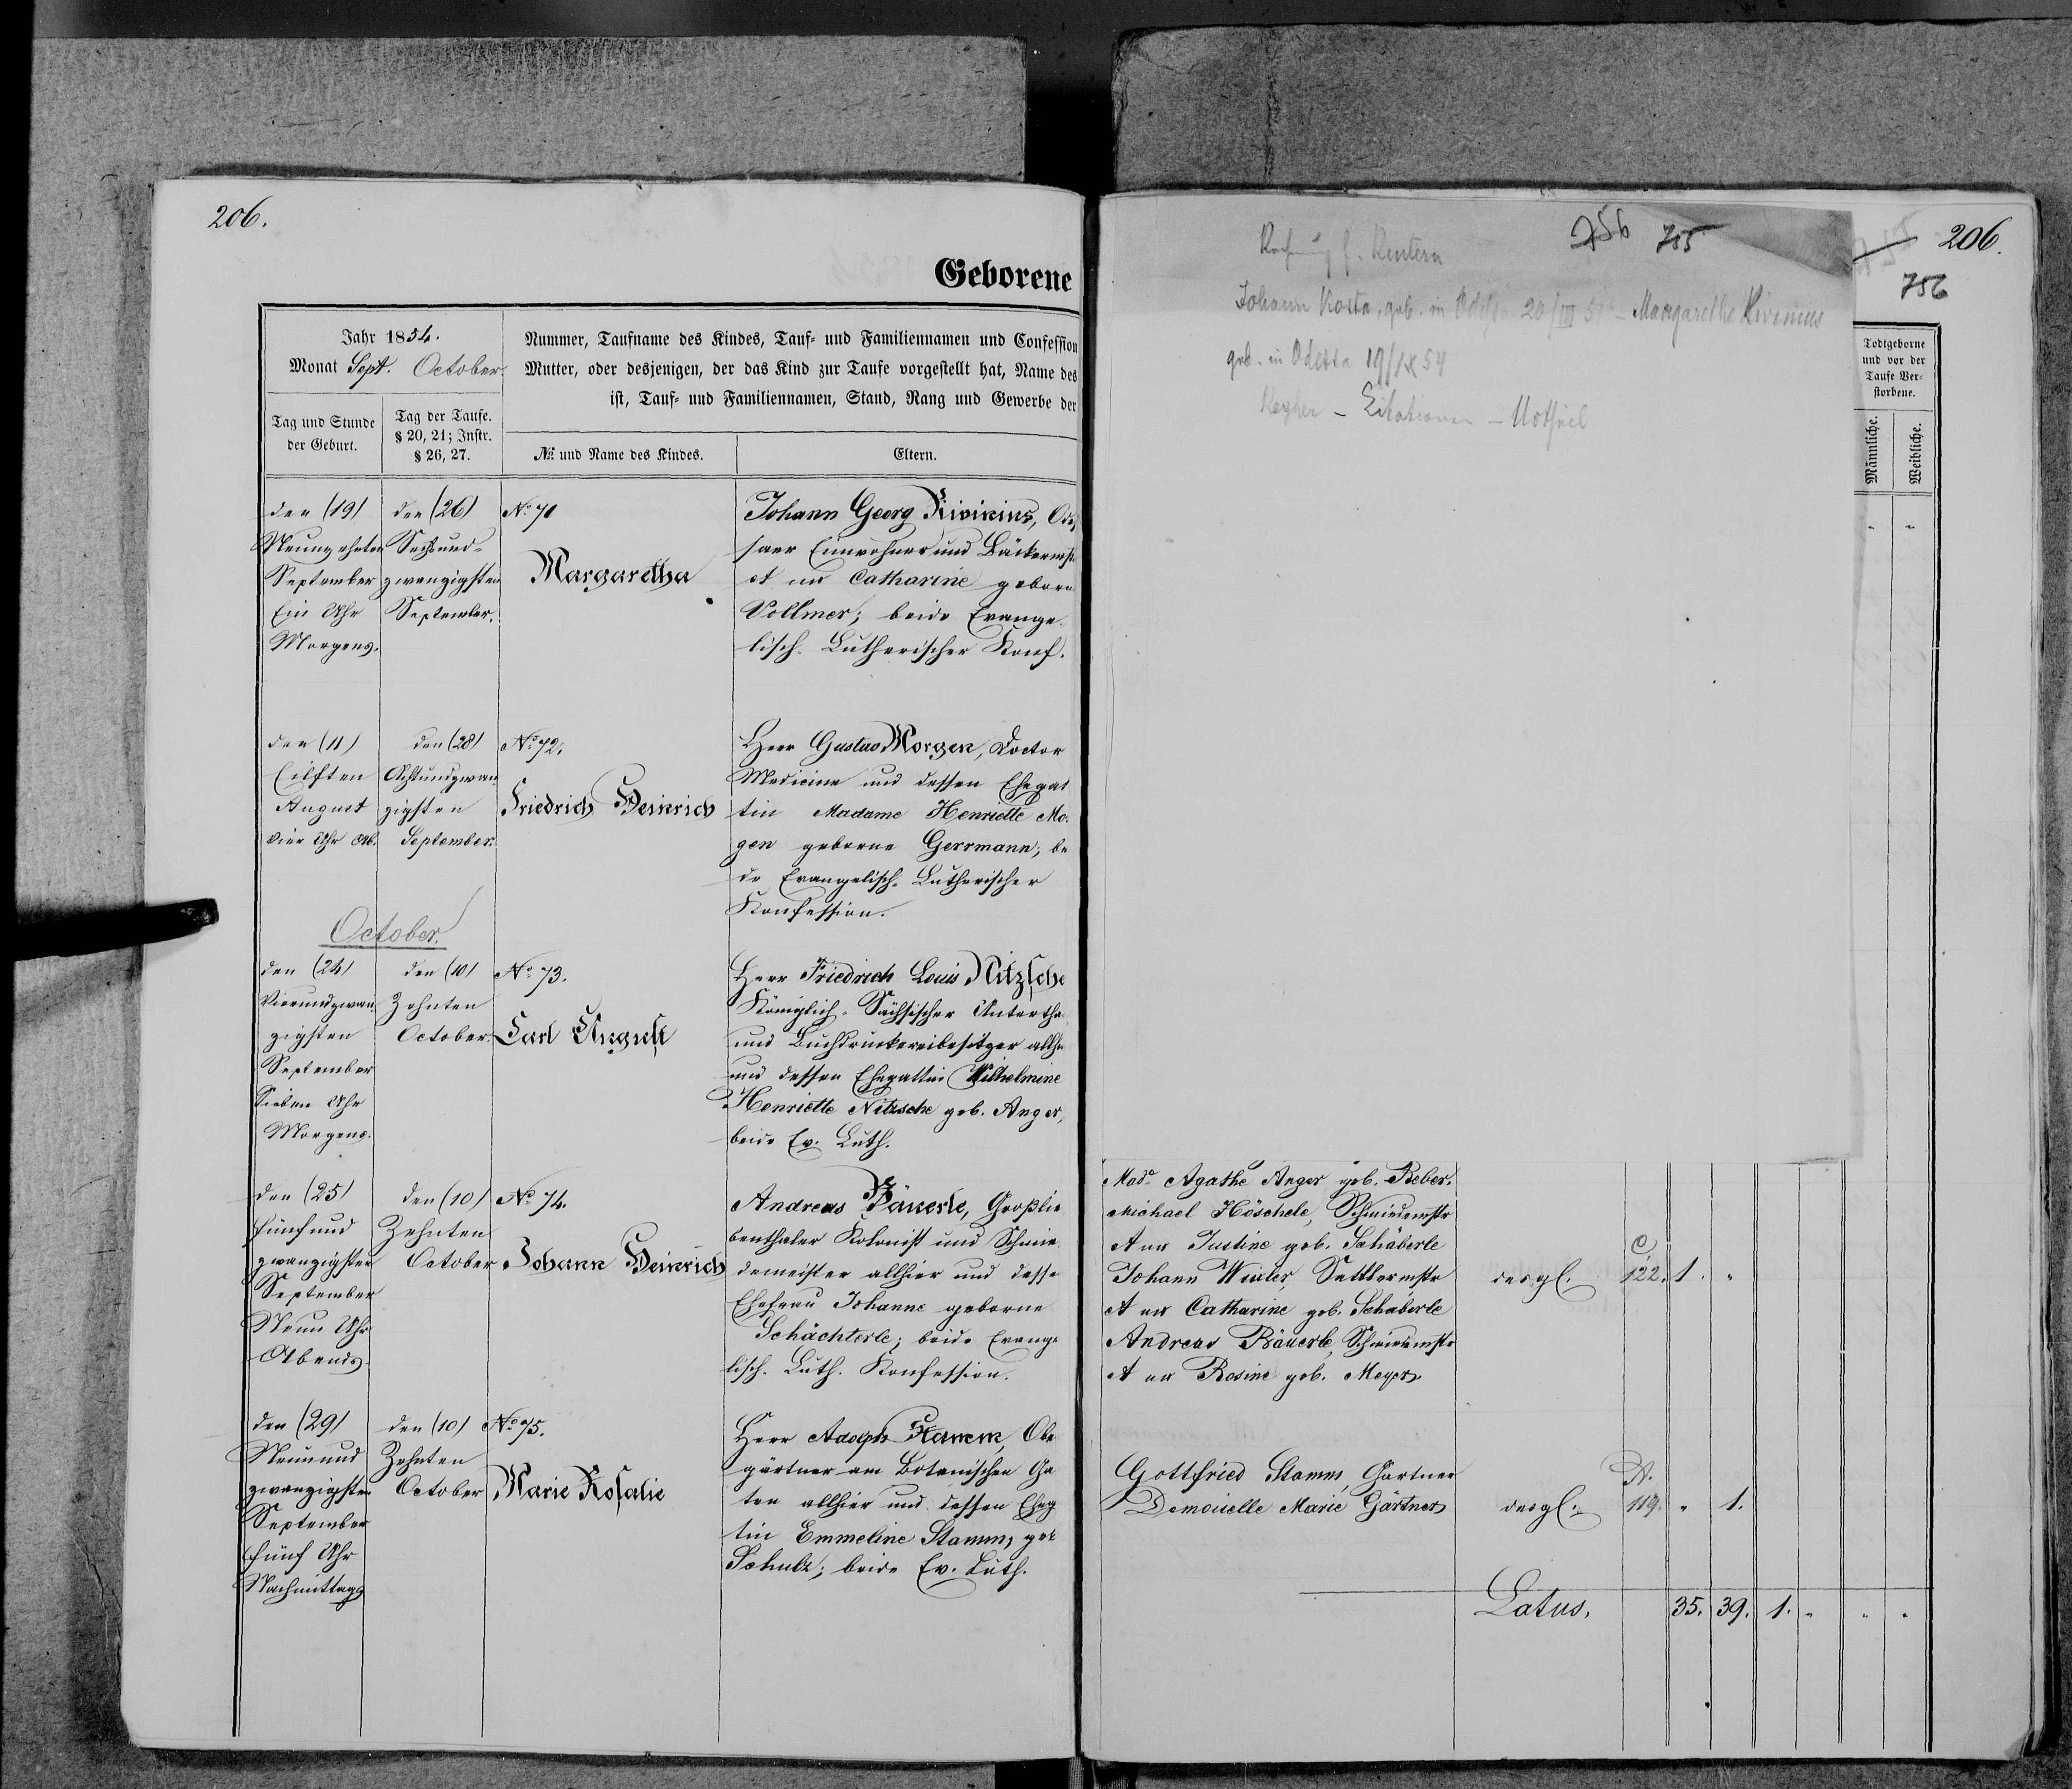 206.
Geborene
Jahr 1854.
Monat Sept. October
Tag und Stunde
der Geburt.
Tag der Taufe.
§ 20, 21; Instr.
§ 26, 27.
Nummer, Taufname des Kindes, Tauf- und Familiennamen und Confession
Mutter, oder desjenigen, der das Kind zur Taufe vorgestellt hat, Name des
ist, Tauf- und Familiennamen, Stand, Rang und Gewerbe der
№ und Name des Kindes.
Eltern.
den (19)
Neunzehnten
September
Ein Uhr
Morgens.
den (26)
Sechsund-
zwanzigsten
September.
No 71
Margaretha
Johann Georg Rivinius, Odes
saer Einwohner und Bäckermst.
et ux Catharine geborn
Vollmer; beide Evange-
lisch-Lutherischer Konf.
den (11)
Eilften
August
vier Uhr Ab.
den (28)
Achtundzwan
zigsten
September.
No 72.
Friedrich Heinrich
Herr Gustav Morgen, Doctor
Medicine und dessen Ehegat
tin Madame Henriette Mo-
gen geborne Germann; be
de Evangelisch-Lutherischer
Konfession.
October.
den (24)
Vierundzwan
zigsten
September
Sieben Uhr
Morgens.
den (10)
Zehnten
October.
No 73.
Carl August
Herr Friedrich Louis Nitzsche
Königlich-Sächsischer Untertha
und Buchdruckereibesitzer allh
und dessen Ehegattin Wilhelmine
Henriette Nitzsche geb. Anger,
beide Ev. Luth.
den (25)
fünfund
zwanzigsten
September
Neun Uhr
Abends.
den (10)
Zehnten
October
No 74.
Johann Heinrich
Andreas Bäuerle, Großlie
benthaler Kolonist und Schmie
demeister allhier und desse
Ehefrau Johanne geborne
Schächterle; beide Evange
lisch. Luth. Konfession.
den (29)
Neunund
zwanzigsten
September
fünf Uhr
Nachmittags
den (10)
Zehnten
October
No 75.
Marie Rosalie
Herr Adolph Stamm, Obe
gärtner am Botanischen Ga
ten allhier und dessen Eheg
tin Emmeline Stamm, ge
Schulz; beide Ev. Luth.
756 755
206.
756
Johann Kosta, geb. in Odessa 20/III 5 - Margarethe Rivinius
geb. in Odessa 19/IX 54
Todtgeborne
und vor der
Taufe Ver-
storbene.
Männliche.
Weibliche.
Made Agathe Anger geb. Beber.
Michael Höschele, Schmiedemstr
et ux Justine geb. Schäberle
Johann Winler, Sattlermstr
et ux Catharine geb. Schäberle
Andreas Bäuerle, Schmiedemstr
et ux Rosine geb. Meyer.
desgl. C 122. 1. "
Gottfried Stamm, Gärtner
Demoiselle Marie Gärtner
desgl. A. 119. " 1.
Latus. 35. 39. 1. " " "